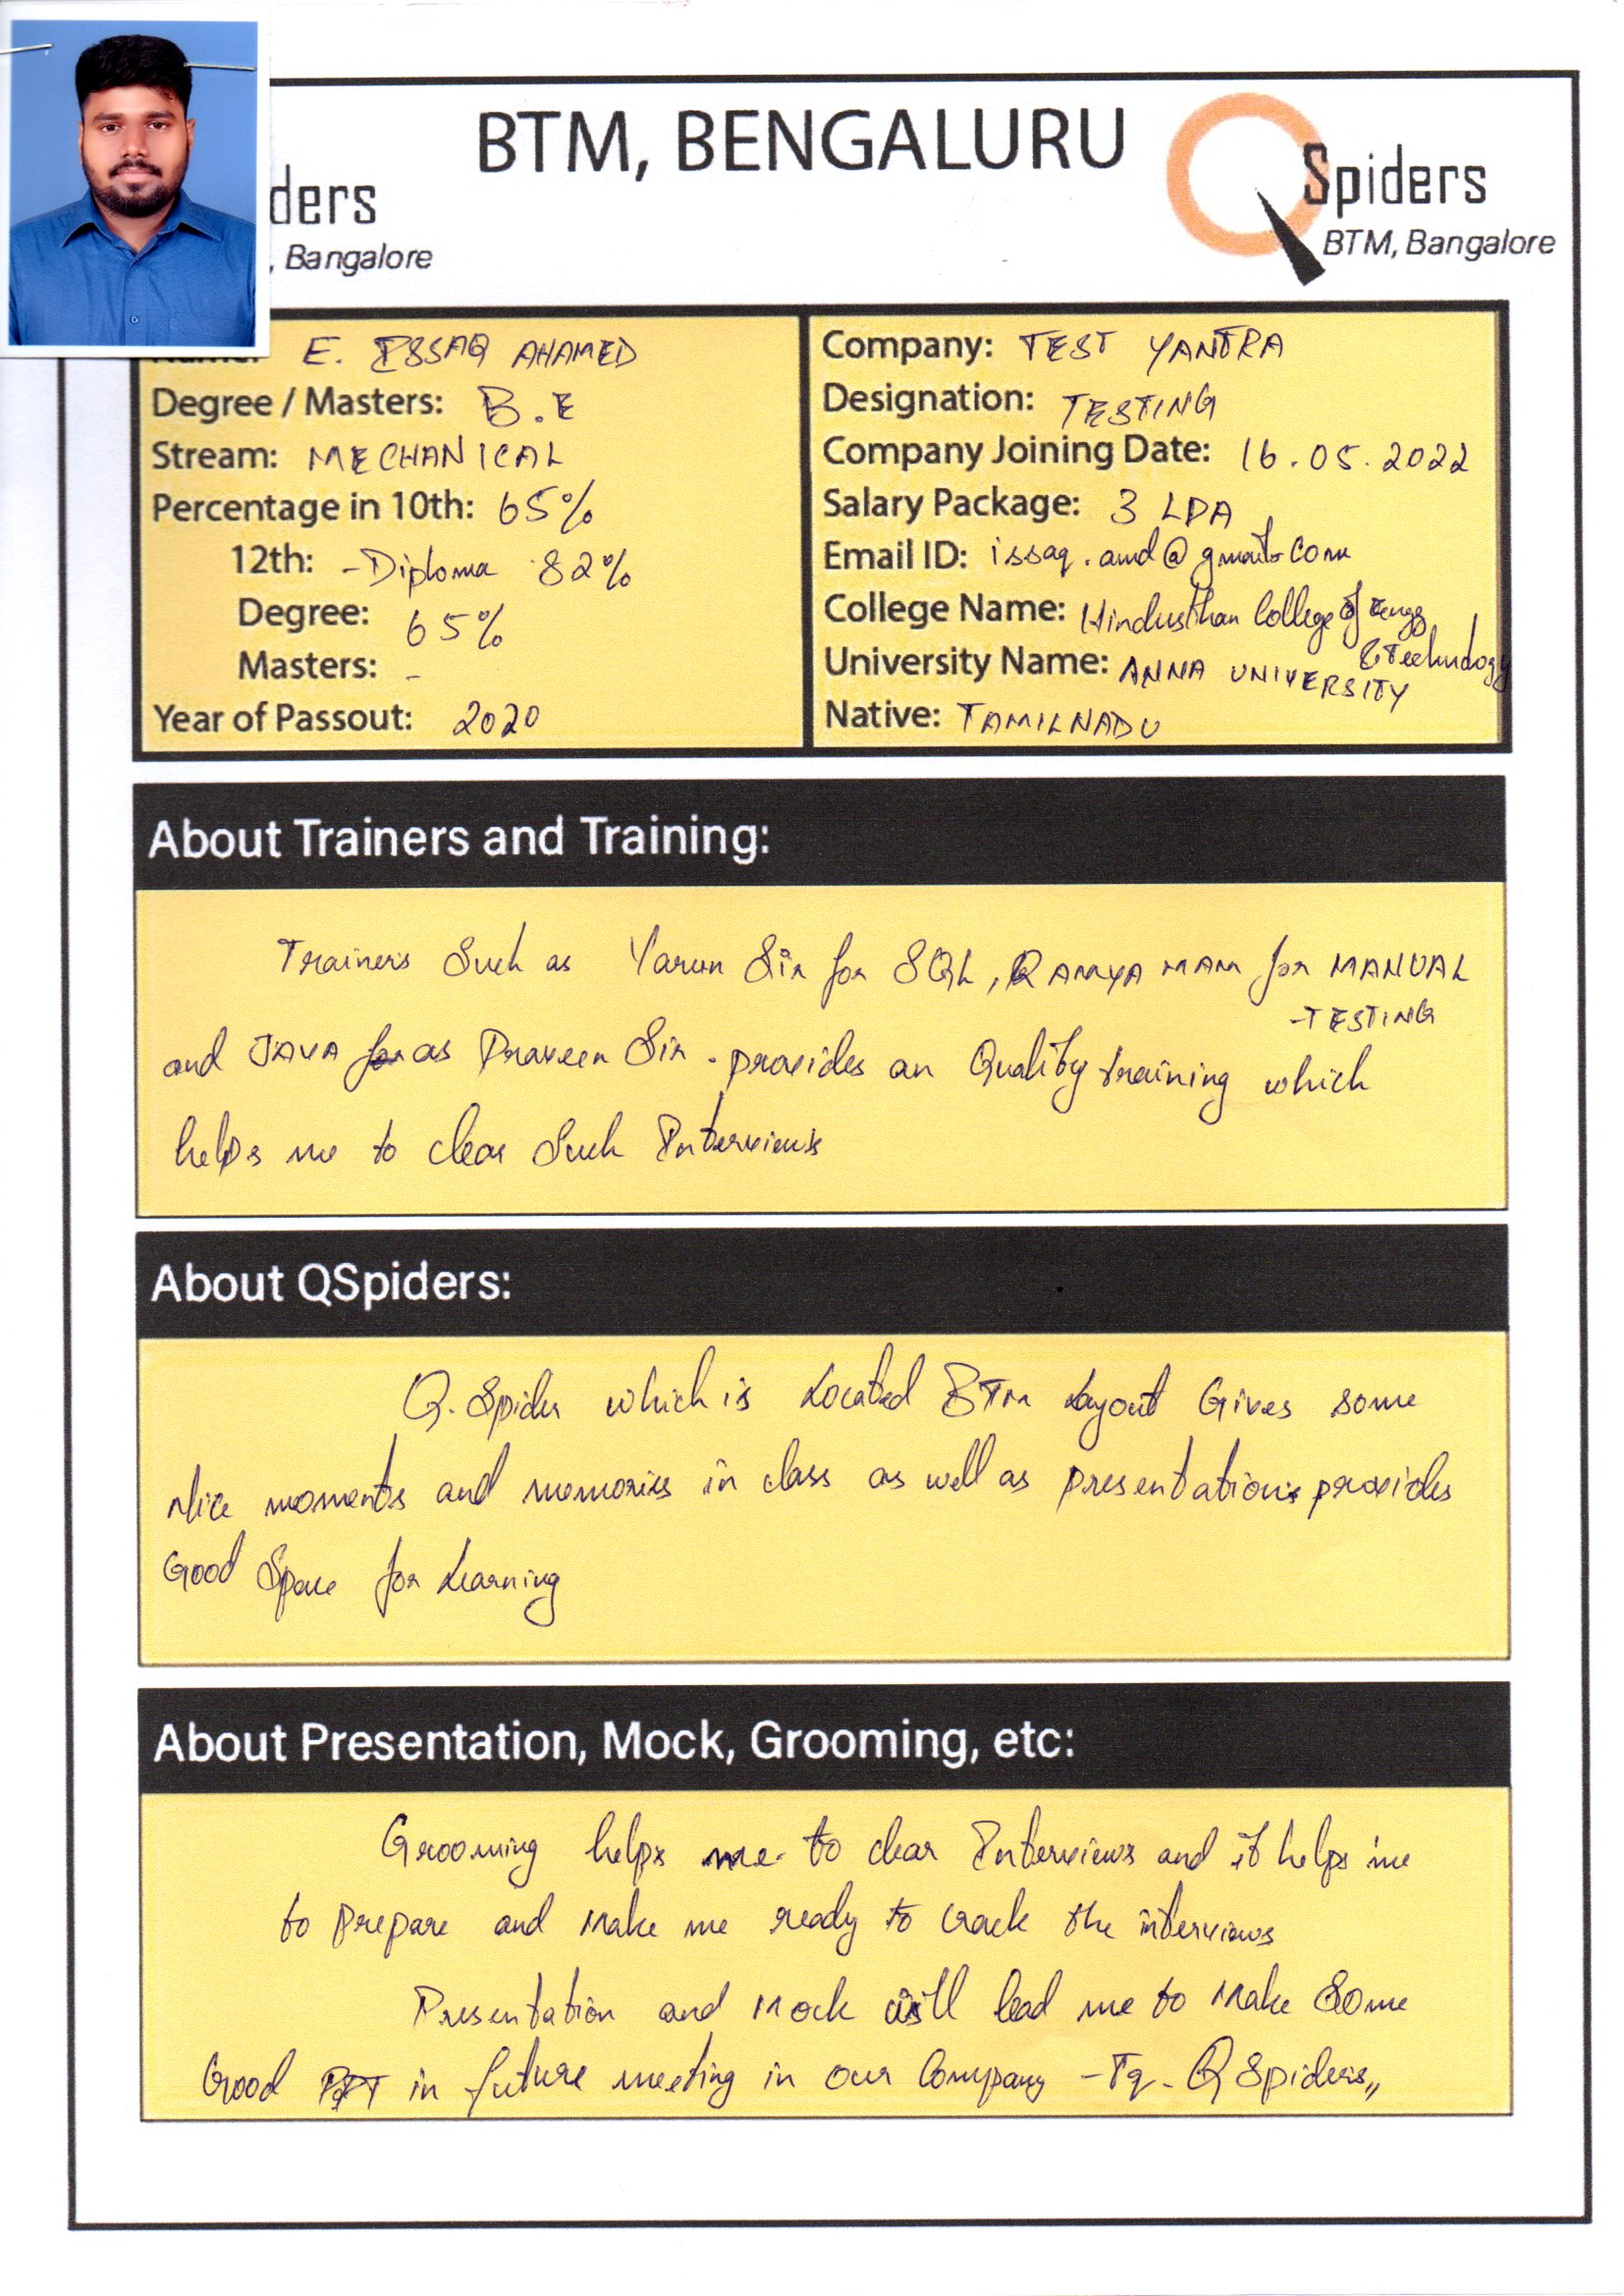 BTM, BENGALURU
ders
, Bangalore
Spiders
BTM, Bangalore
Name: E. ISSAQ AHAMED
Degree / Masters: B.E
Stream: MECHANICAL
Percentage in 10th: 65%
12th: - Diploma 82%
Degree: 65%
Masters: -
Year of Passout: 2020
Company: TEST YANTRA
Designation: TESTING
Company Joining Date: 16.05.2022
Salary Package: 3 LPA
Email ID: issaq.amd@gmail.com
College Name: Hindusthan College of Engg
& Technology
University Name: ANNA UNIVERSITY
Native: TAMILNADU
About Trainers and Training:
Trainers Such as Varun Sir for SQL, RAMYA MAM for MANUAL
-TESTING
and JAVA for as Praveen Sir. provides an Quality training which
helps me to clear Such Interviews
About QSpiders:
Q. Spider which is Located BTM Layout Gives some
Nice moments and memories in class as well as presentations provides
Good Space for Learning
About Presentation, Mock, Grooming, etc:
Grooming helps me to clear Interviews and it helps me
to prepare and make me ready to crack the interviews
Presentation and Mock will lead me to Make Some
Good PPT in future meeting in our Company - Tq. Q Spiders,,